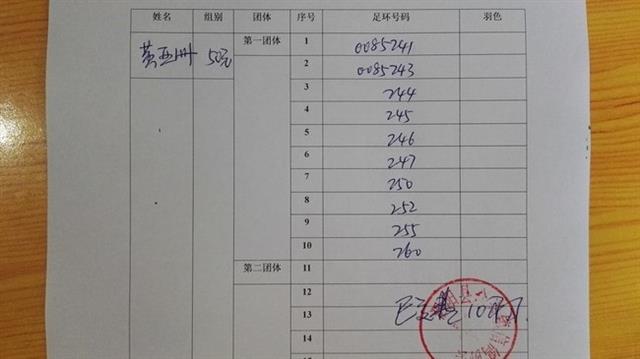 姓名 组别 团体 序号 足环号码 羽色
黄亚洲 50元 第一团体 1 0085241
2 0085243
3 244
4 245
5 246
6 247
7 250
8 252
9 255
10 260
第二团体 11
12
13
14